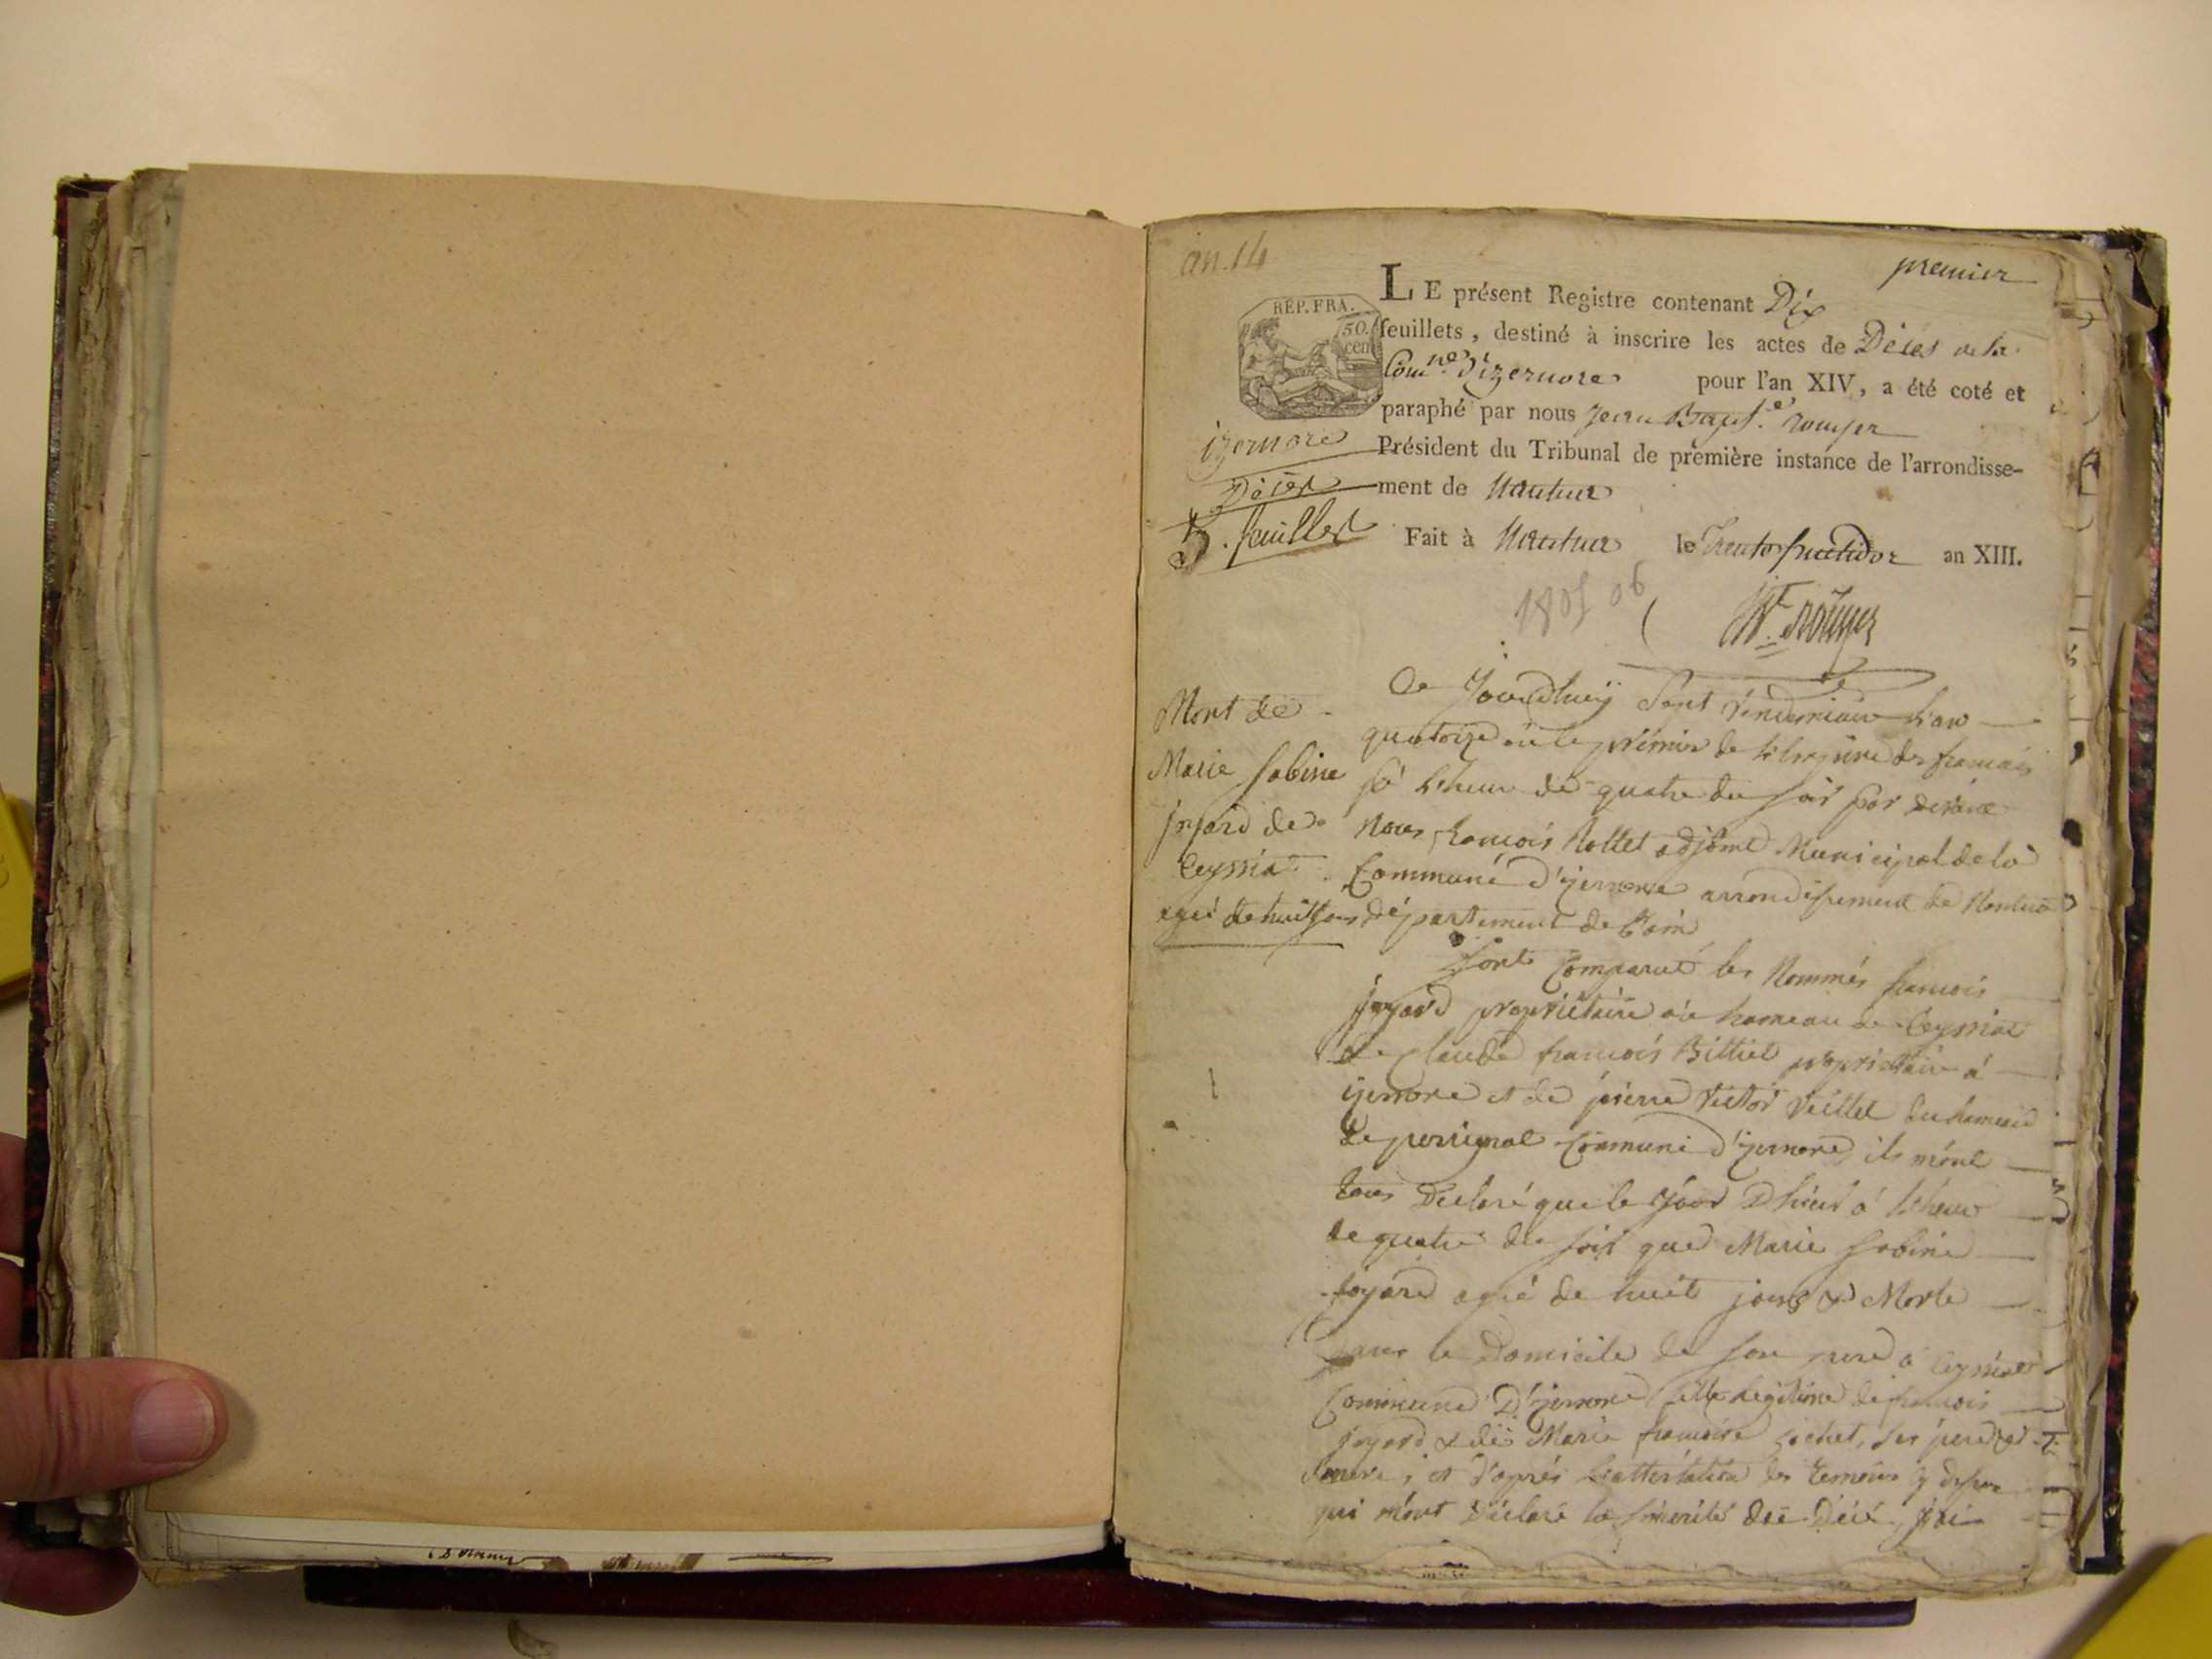 an. 14
premier
RÉP. FRA.
50. cen
LE présent Registre contenant Dix
feuillets, destiné à inscrire les actes de Décès de la
Comne. D'izernore pour l'an XIV, a été coté et
paraphé par nous Jean Bapt.e rouyer
Président du Tribunal de première instance de l'arrondisse-
ment de Nantua
Fait à Nantua le Trente fructidor an XIII.
izernore
Décès
5. feuillet
1805 06
Bte. Rouyer
Mort de
Marie Sabine
joyard de
Ceyssiat
agé de huit jours
Ce Jourdhuÿ Sept Vendemiaire L'an
quatorze où le prémier de L'Empire des francais
à L'heure de quatre du soir par devant
Nous francois Nollet adjoint Municipal de la
Commune d'izernore arrondissement de Nantua
département de L'ain
Sont Comparut les Nommés francois
joyard propriétaire au hameau de Ceyssiat
de Claude francois Billiet propriétaire à
izernore et de pierre Victor Veillet du hameau
de perrignat Commune d'izernore, ils m'ont
tous Declaré que le Jour D'hier à L'heure
de quatre du soir que Marie Sabine
joyard agée de huit jours est Morte
dans le Domicile de son pere à Ceyssiat
Commune D'izernore fille Legitime de francois
joyard & de Marie francoise ses pere et
mere, et d'aprés L'attestation des temoins
qui m'ont Déclaré la sincerité j'ai